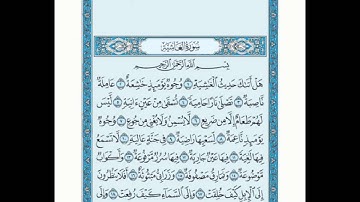 سُورَةُ الْغَاشِيَةِ
بِسْمِ اللَّهِ الرَّحْمَٰنِ الرَّحِيمِ
هَلْ أَتَىٰكَ حَدِيثُ الْغَٰشِيَةِ ١ وُجُوهٌ يَوْمَئِذٍ خَٰشِعَةٌ ٢ عَامِلَةٌ
نَّاصِبَةٌ ٣ تَصْلَىٰ نَارًا حَامِيَةً ٤ تُسْقَىٰ مِنْ عَيْنٍ ءَانِيَةٍ ٥ لَّيْسَ
لَهُمْ طَعَامٌ إِلَّا مِن ضَرِيعٍ ٦ لَّا يُسْمِنُ وَلَا يُغْنِي مِن جُوعٍ ٧ وُجُوهٌ
يَوْمَئِذٍ نَّاعِمَةٌ ٨ لِّسَعْيِهَا رَاضِيَةٌ ٩ فِي جَنَّةٍ عَالِيَةٍ ١٠ لَّا تَسْمَعُ
فِيهَا لَٰغِيَةً ١١ فِيهَا عَيْنٌ جَارِيَةٌ ١٢ فِيهَا سُرُرٌ مَّرْفُوعَةٌ ١٣ وَأَكْوَابٌ
مَّوْضُوعَةٌ ١٤ وَنَمَارِقُ مَصْفُوفَةٌ ١٥ وَزَرَابِيُّ مَبْثُوثَةٌ ١٦ أَفَلَا يَنظُرُونَ
إِلَى الْإِبِلِ كَيْفَ خُلِقَتْ ١٧ وَإِلَى السَّمَاءِ كَيْفَ رُفِعَتْ ١٨